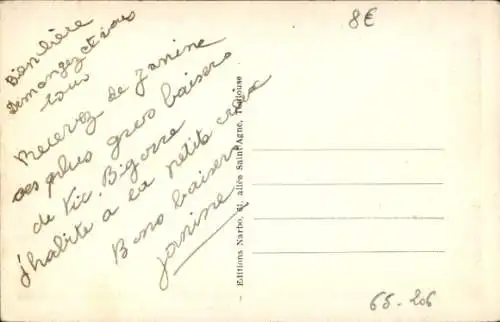 8€
Bien chère
tous
Recevez de Janine
ses plus gros baisers
de Vic. Bigorre
J'habite a la petite croix
Bons baisers
Janine
Editions Narbo, allée Saint-Agne, Toulouse
65-206